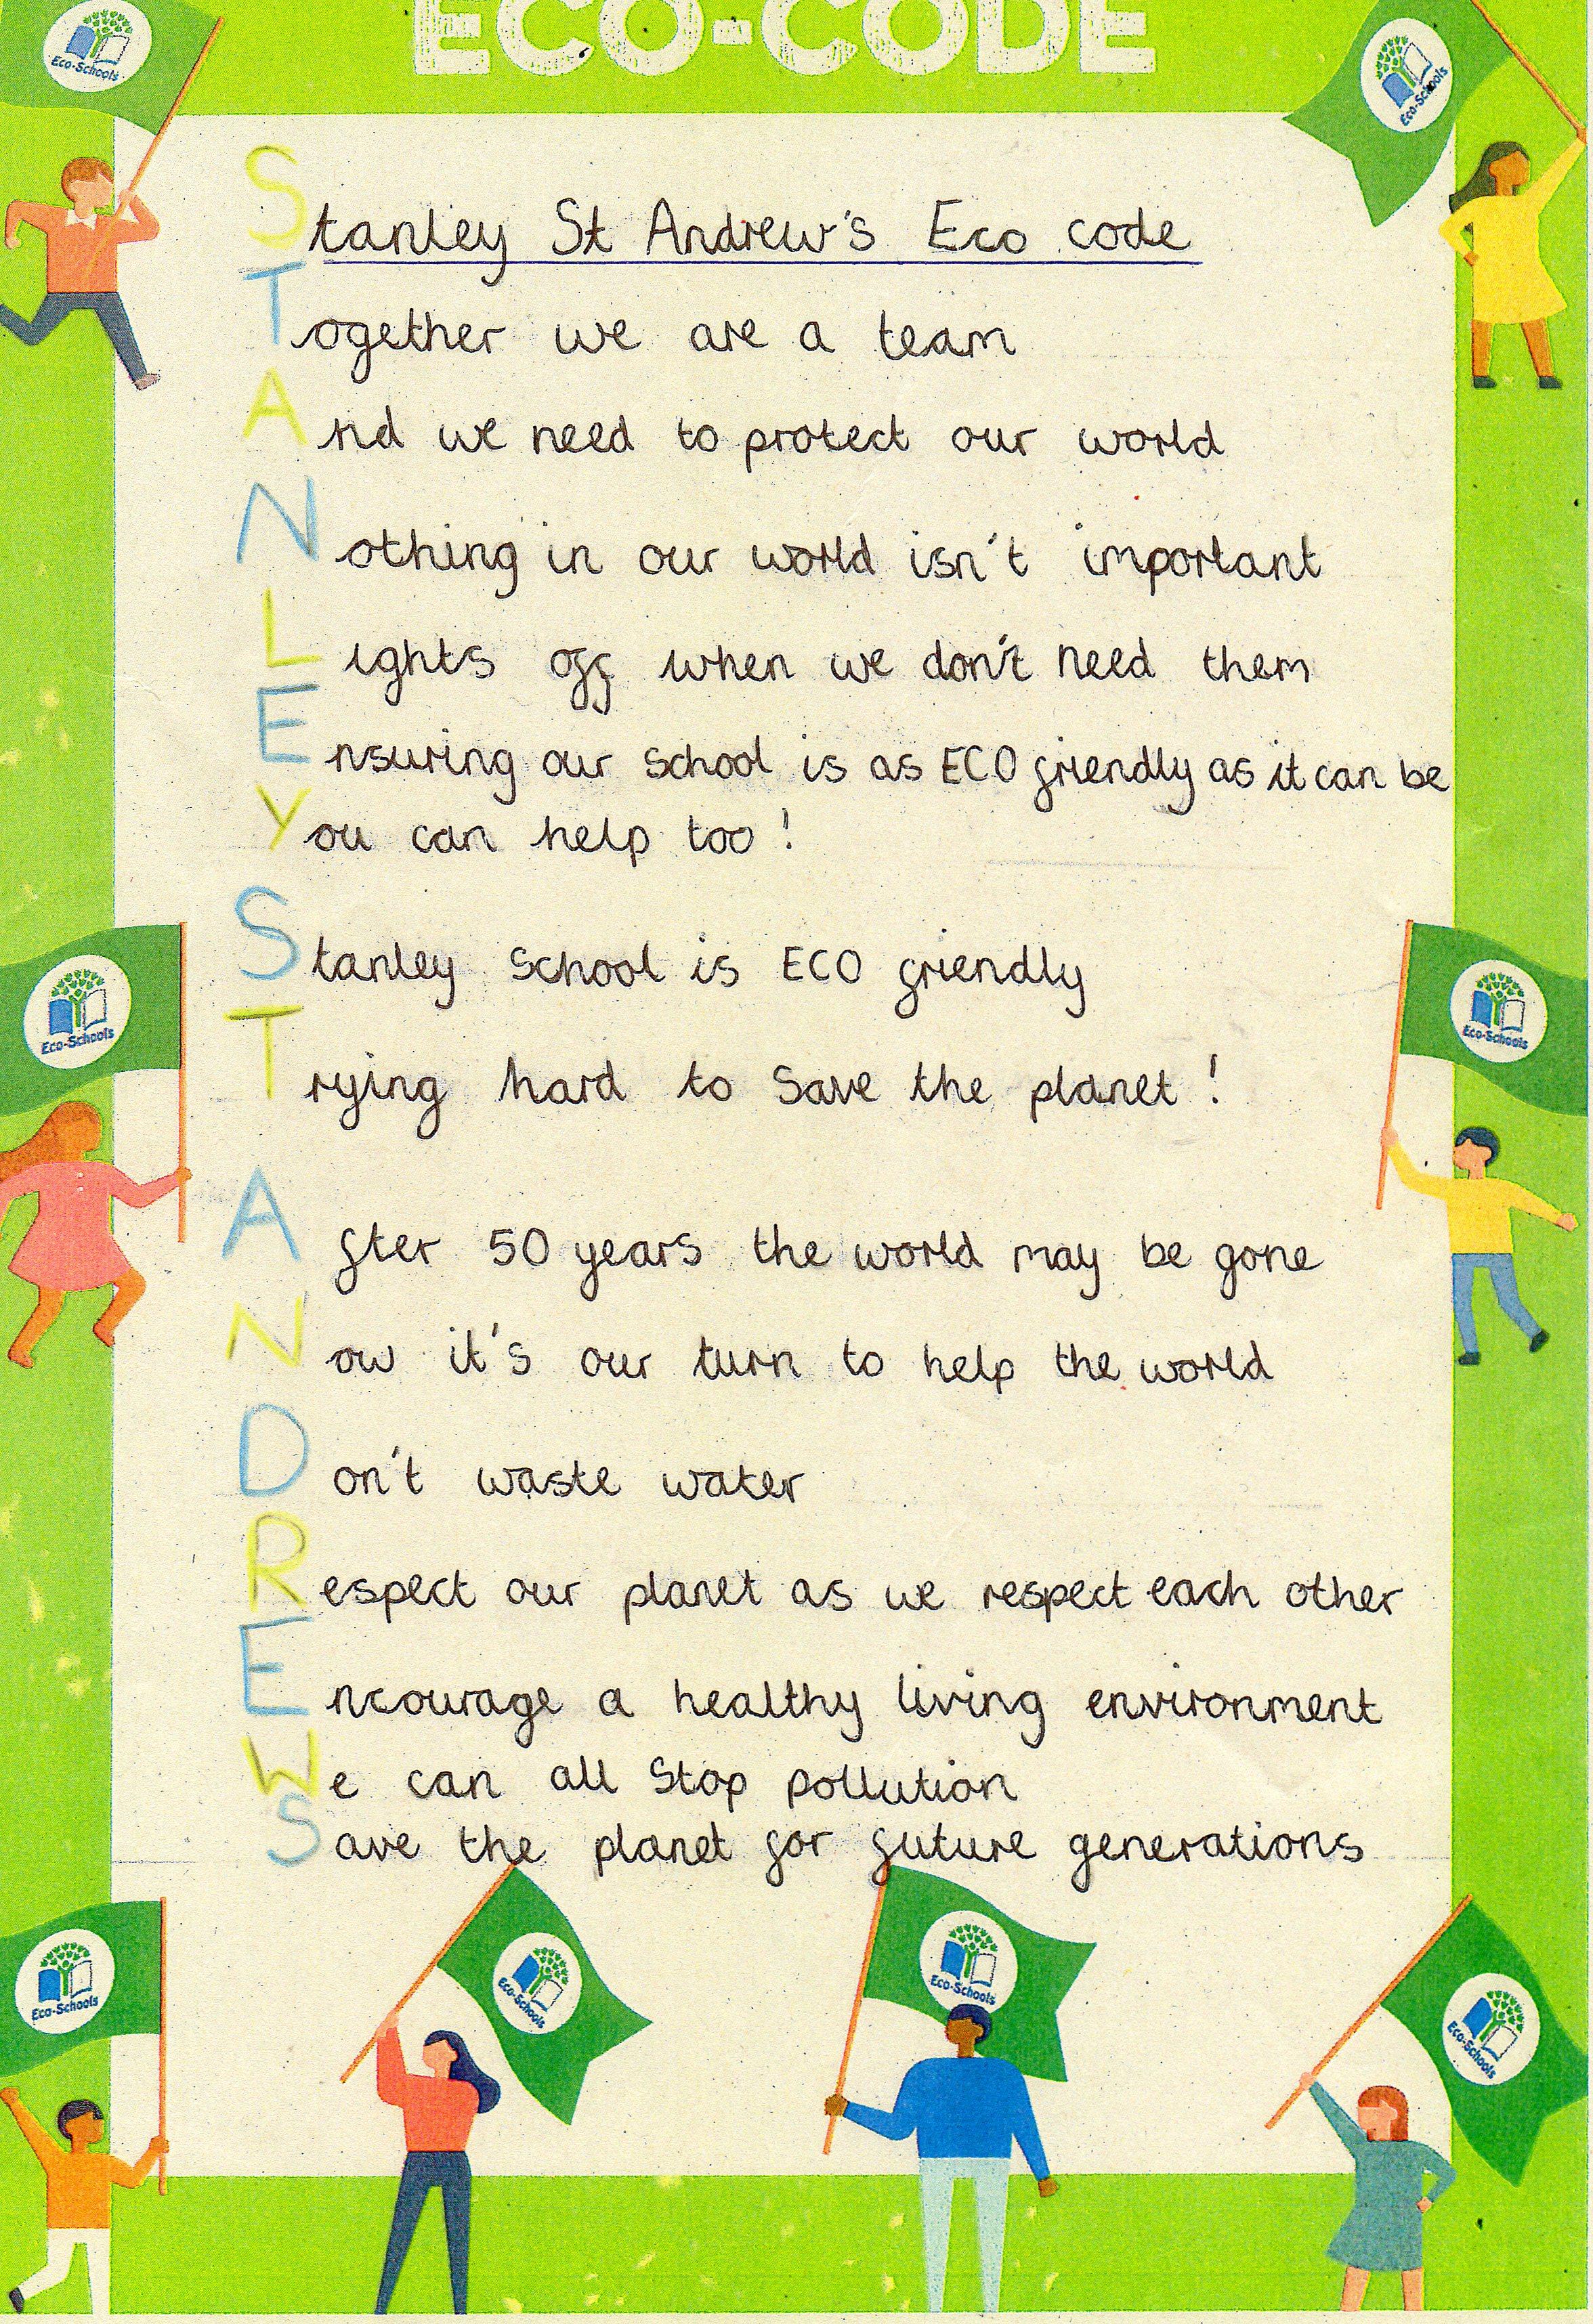 ECO-CODE
Eco-Schools
Eco-Schools
Stanley St Andrew's Eco code
Together we are a team
And we need to protect our world
Nothing in our world isn't important
Lights off when we don't need them
Ensuring our school is as ECO friendly as it can be
You can help too!
Stanley school is ECO friendly
Eco-Schools
Eco-Schools
Trying hard to save the planet!
After 50 years the world may be gone
Now it's our turn to help the world
Don't waste water
Respect our planet as we respect each other
Encourage a healthy living environment
We can all stop pollution
Save the planet for future generations
Eco-Schools
Eco-Schools
Eco-Schools
Eco-Schools